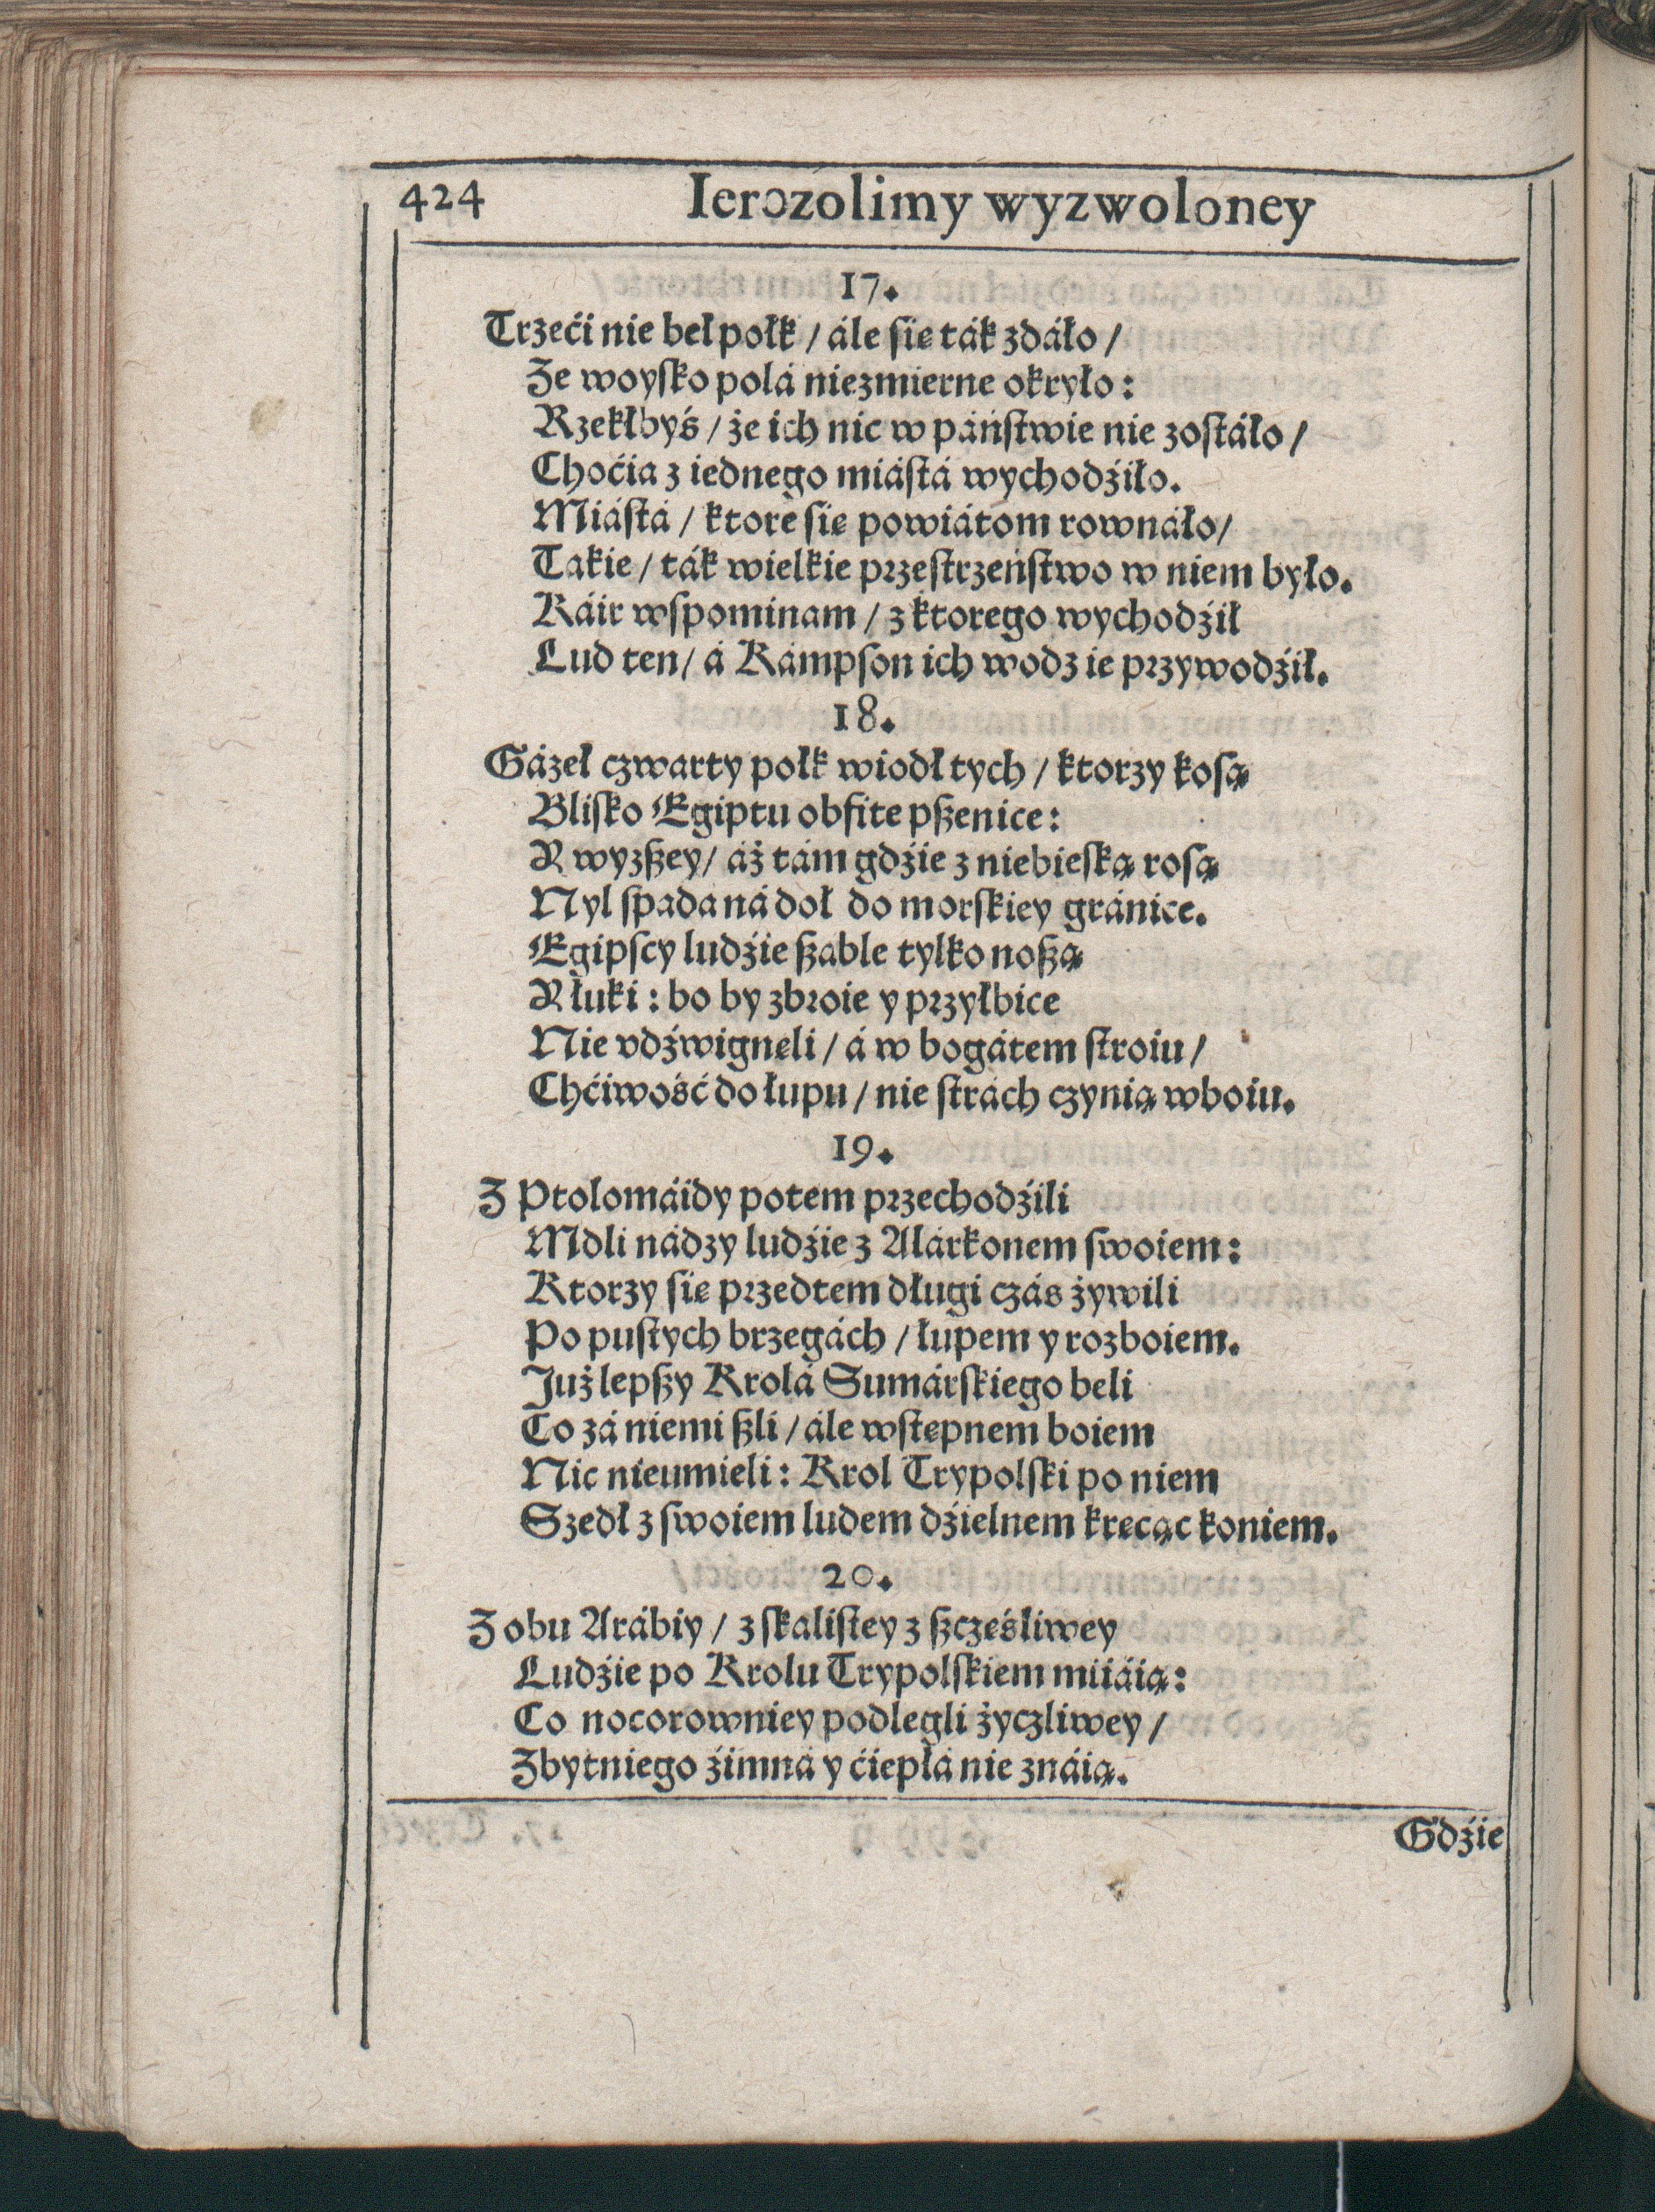 424 Ierozolimy wyzwoloney
17.
Trzeći nie beł połk / ále się ták zdáło /
Ze woysko polá niezmierne okryło:
Rzekłbyś / że ich nic w páństwie nie zostáło /
Choćia z iednego miástá wychodźiło.
Miástá / ktore się powiátom rownáło /
Takie / ták wielkie przestrzeństwo w niem było.
Káir wspominam / z ktorego wychodźił
Lud ten / á Kámpson ich wodz ie przywodźił.
18.
Gázeł czwarty połk wiodł tych / ktorzy koszą
Blisko Egiptu obfite pszenice:
Y wyzszey / áż tám gdźie z niebieską rosą
Nyl spada ná doł do morskiey gránice.
Egipscy ludźie szable tylko noszą
Y łuki: bo by zbroie y przyłbice
Nie vdźwignęli / á w bogátem stroiu /
Chćiwość do łupu / nie strách czynią w boiu.
19.
Z Ptolomáidy potem przechodźili
Mdli nádzy ludźie z Alárkonem swoiem:
Ktorzy się przedtem długi czás żywili
Po pustych brzegách / łupem y rozboiem.
Już lepszy Krolá Sumárskiego beli
Co zá niemi szli / ále wstępnem boiem
Nic nieumieli: Krol Trypolski po niem
Szedł z swoiem ludem dźielnem kręcąc koniem.
20.
Z obu Arábiy / z skalistey z szczęśliwey
Ludźie po Krolu Trypolskiem miiáią:
Co nocorowniey podlegli życzliwey /
Zbytniego źimná y ćiepłá nie znáią.
Gdźie